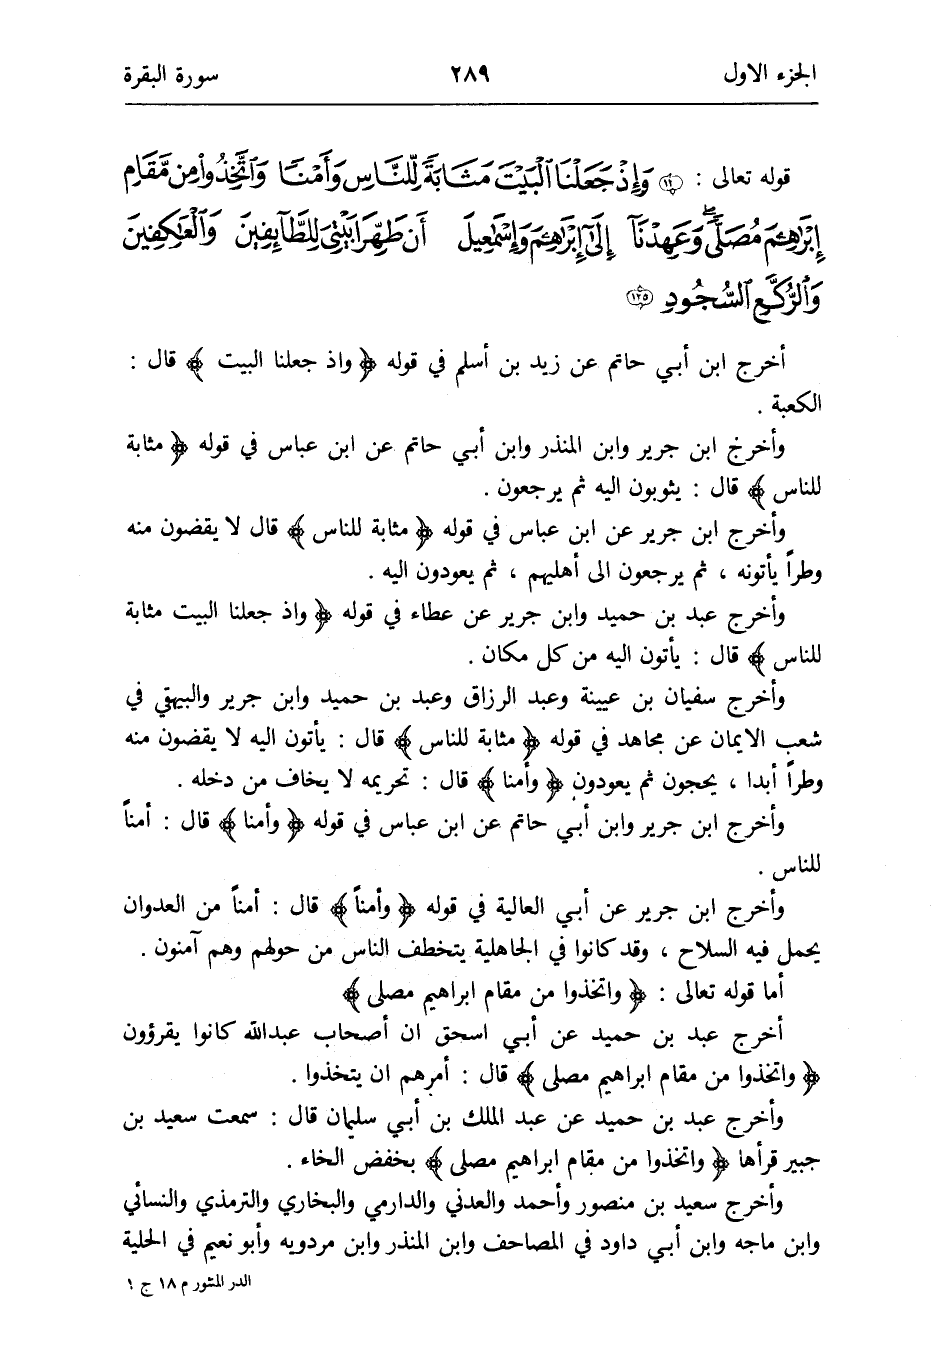 الجزء الاول ٢٨٩ سورة البقرة
قوله تعالى : وَإِذْ جَعَلْنَا ٱلْبَيْتَ مَثَابَةً لِّلنَّاسِ وَأَمْنًا وَٱتَّخِذُوا۟ مِن مَّقَامِ
إِبْرَٰهِـۧمَ مُصَلًّى ۖ وَعَهِدْنَآ إِلَىٰٓ إِبْرَٰهِـۧمَ وَإِسْمَٰعِيلَ أَن طَهِّرَا بَيْتِىَ لِلطَّآئِفِينَ وَٱلْعَٰكِفِينَ
وَٱلرُّكَّعِ ٱلسُّجُودِ ١٢٥
أخرج ابن أبي حاتم عن زيد بن أسلم في قوله ﴿ واذ جعلنا البيت ﴾ قال :
الكعبة .
وأخرج ابن جرير وابن المنذر وابن أبي حاتم عن ابن عباس في قوله ﴿ مثابة
للناس ﴾ قال : يثوبون اليه ثم يرجعون .
وأخرج ابن جرير عن ابن عباس في قوله ﴿ مثابة للناس ﴾ قال لا يقضون منه
وطراً يأتونه ، ثم يرجعون الى أهليهم ، ثم يعودون اليه .
وأخرج عبد بن حميد وابن جرير عن عطاء في قوله ﴿ واذ جعلنا البيت مثابة
للناس ﴾ قال : يأتون اليه من كل مكان .
وأخرج سفيان بن عيينة وعبد الرزاق وعبد بن حميد وابن جرير والبيهقي في
شعب الايمان عن مجاهد في قوله ﴿ مثابة للناس ﴾ قال : يأتون اليه لا يقضون منه
وطراً أبدا ، يحجون ثم يعودون ﴿ وأمنا ﴾ قال : تحريمه لا يخاف من دخله .
وأخرج ابن جرير وابن أبي حاتم عن ابن عباس في قوله ﴿ وأمنا ﴾ قال : أمناً
للناس .
وأخرج ابن جرير عن أبي العالية في قوله ﴿ وأمناً ﴾ قال : أمناً من العدوان
يحمل فيه السلاح ، وقد كانوا في الجاهلية يتخطف الناس من حولهم وهم آمنون .
أما قوله تعالى : ﴿ واتخذوا من مقام ابراهيم مصلى ﴾
أخرج عبد بن حميد عن أبي اسحق ان أصحاب عبدالله كانوا يقرؤون
﴿ واتخذوا من مقام ابراهيم مصلى ﴾ قال : أمرهم ان يتخذوا .
وأخرج عبد بن حميد عن عبد الملك بن أبي سليمان قال : سمعت سعيد بن
جبير قرأها ﴿ واتخذوا من مقام ابراهيم مصلى ﴾ بخفض الخاء .
وأخرج سعيد بن منصور وأحمد والعدني والدارمي والبخاري والترمذي والنسائي
وابن ماجه وابن أبي داود في المصاحف وابن المنذر وابن مردويه وأبو نعيم في الحلية
الدر المنثور م ١٨ ج ١